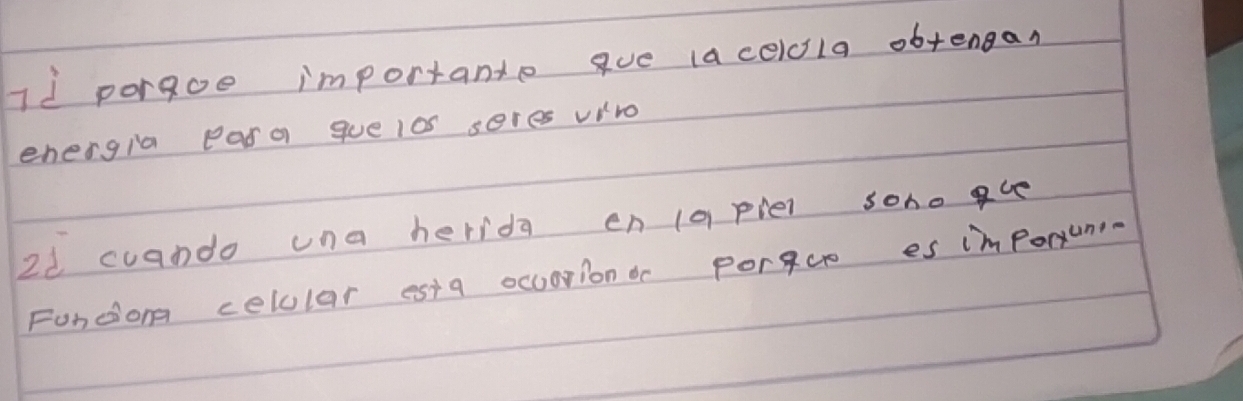 1¿ porqoe importante que la celula obtengan
energía para que los seres vivo
2¿ cuando una herida en la piel sono que
Funciona celular esta ocuorion porque es importan